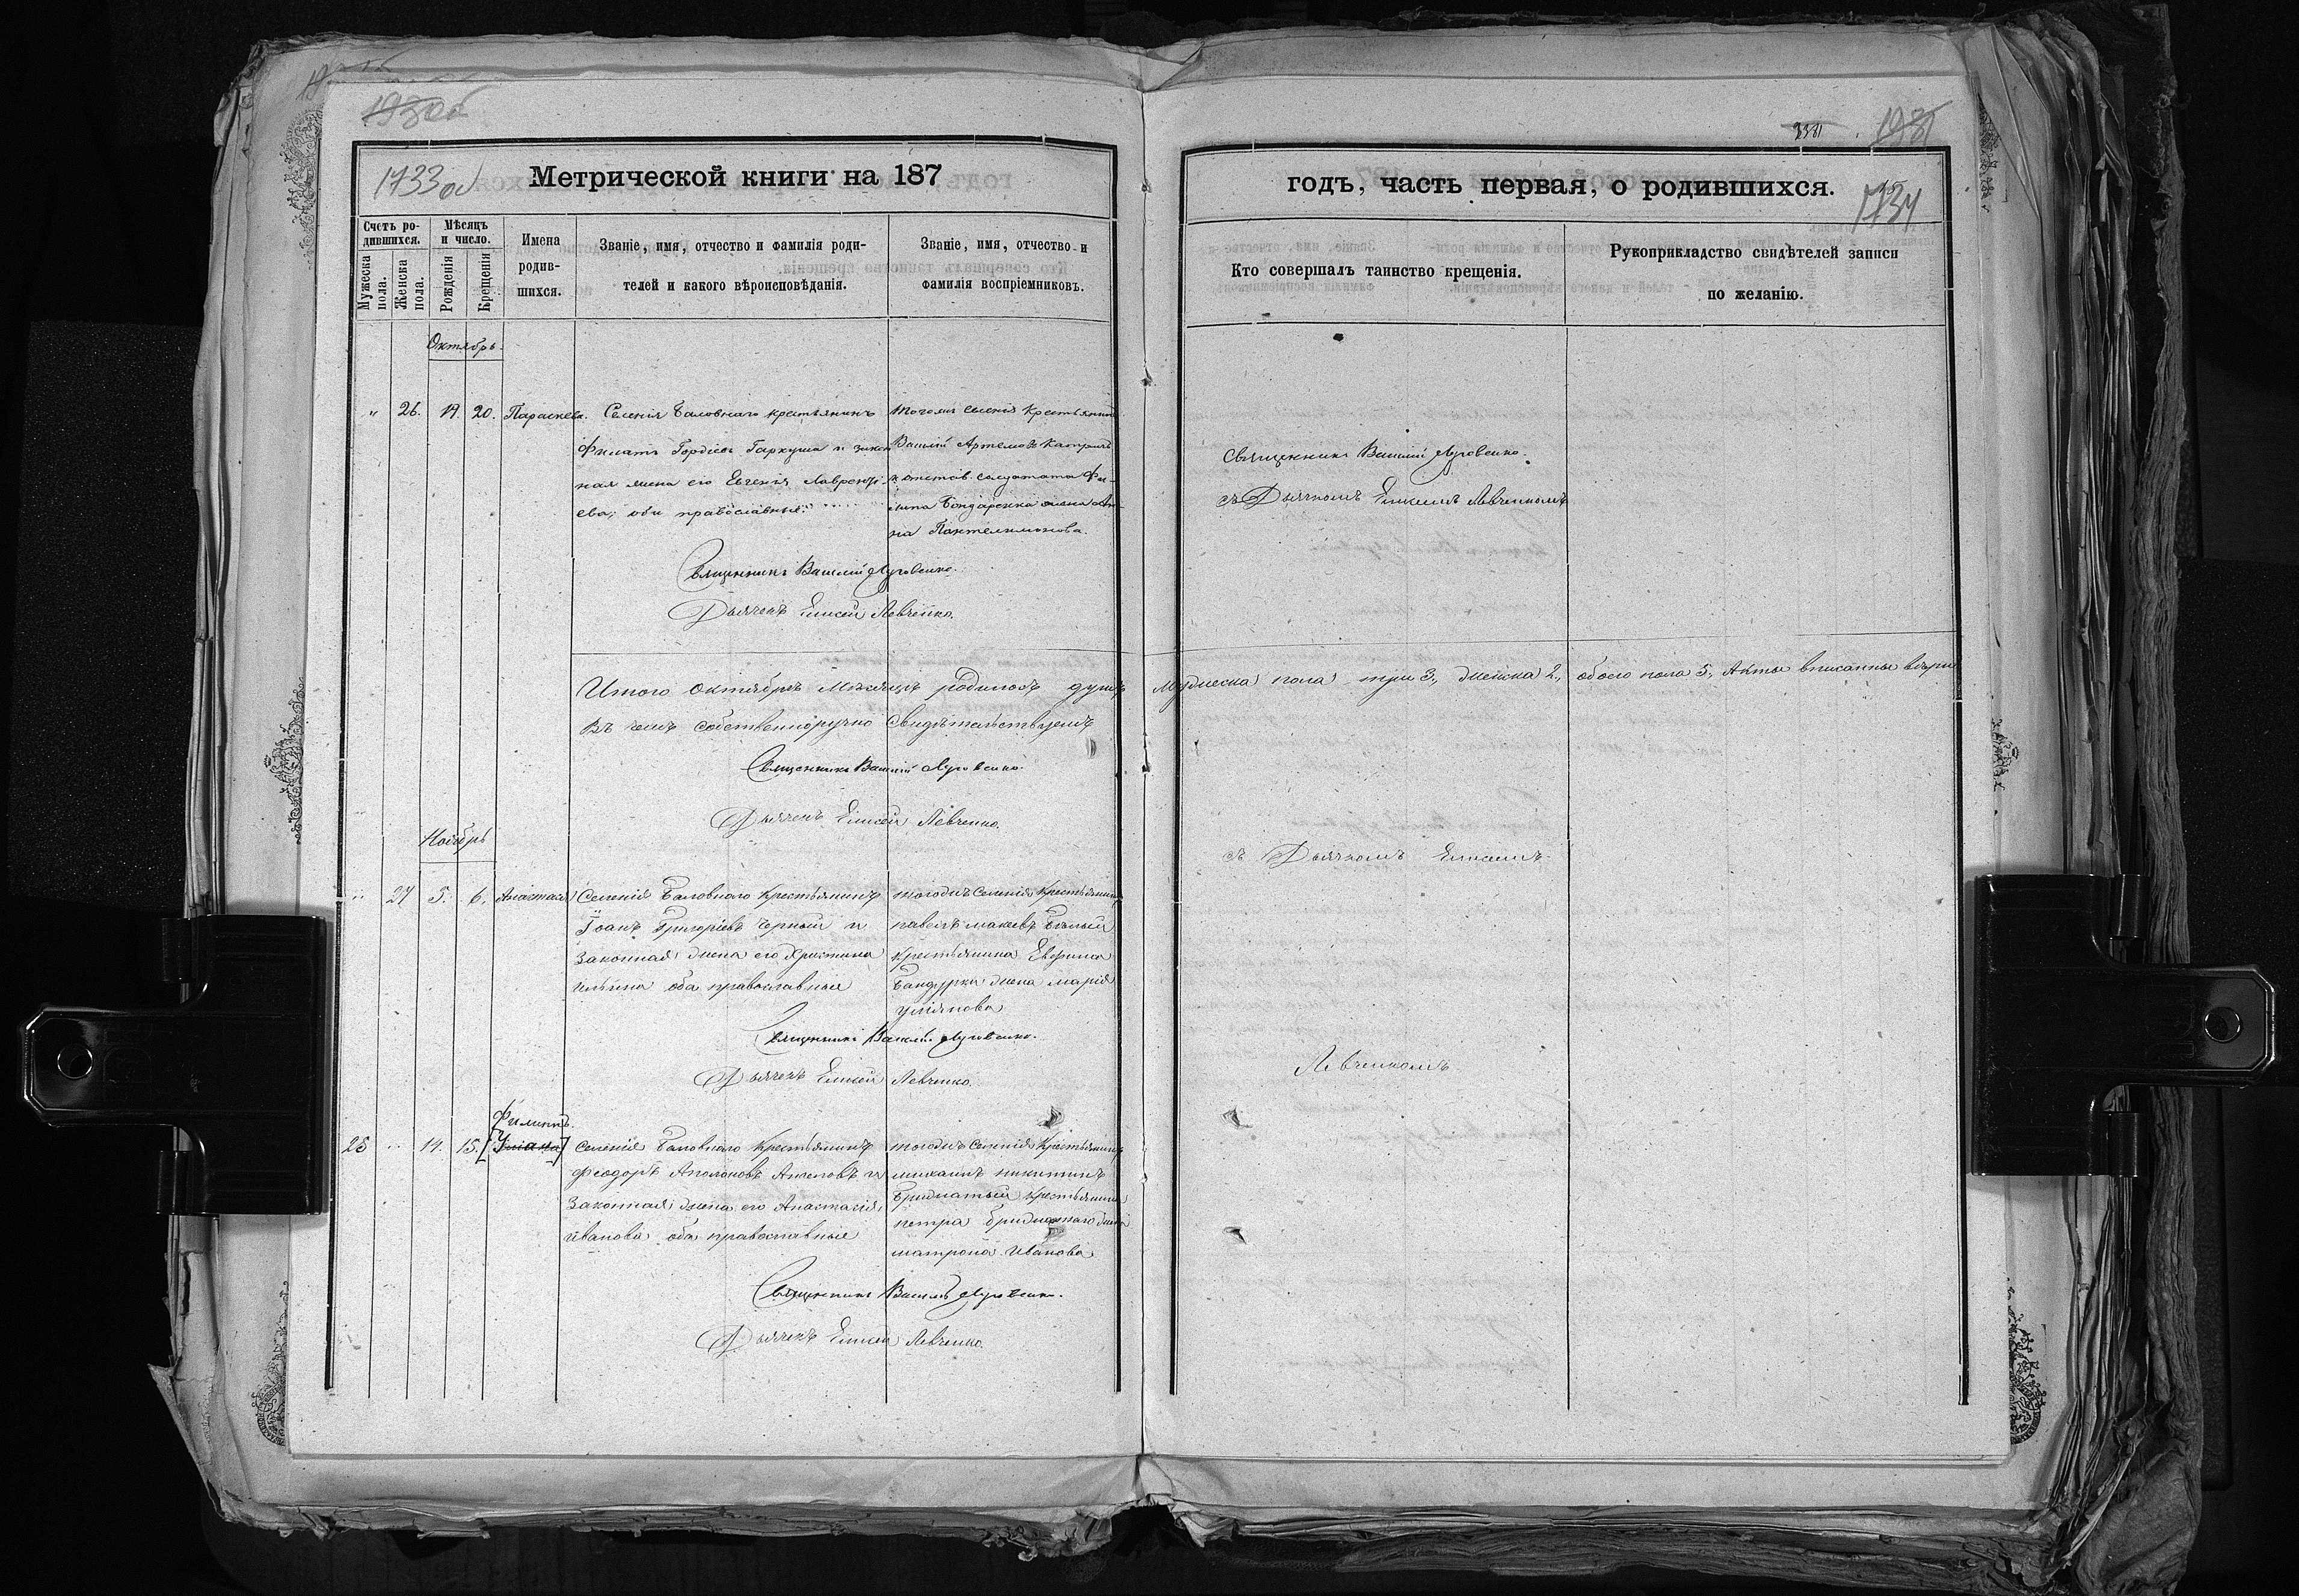 1930об
1733об
Метрической книги на 187
Счетъ ро-
дившихся.
Мѣсяцъ
и число.
Мужеска
пола.
Женска
пола.
Рожденія
Крещенія
Имена
родив-
шихся.
Званіе, имя, отчество и фамилія роди-
телей и какого вѣроисповѣданія.
Званіе, имя, отчество и
фамилія воспріемниковъ.
Октябрь
" 26. 19. 20. Параскева. Селенія Баловнаго крестьянинъ
Филатъ Гордіевъ Гаркуша и закон
ная жена его Евгенія Лаврентi-
ева, оби православные.
тогожъ селенія Крестьянинъ
Василій Артемовъ
и отстав. солдата Фи-
липа Бондаренка жена Ан-
на Пантелимонова.
Священникъ Василій Луговенко.
Дьячекъ Елисей Левченко.
Итого Октябрѣ Мѣсяцѣ родилось душъ
въ чемъ собственноручно Свидѣтельствуемъ
Священникъ Василій Луговенко.
Дьячекъ Елисей Левченко.
Ноябрь
" 27 5. 6. Анастасія Селенія Баловнаго Крестьянинъ
Іоанъ Григоріевъ Черный и
Законная жена его Христина
Ильина оба православные
тогожъ Селенія Крестьянинъ
павелъ макеевъ Бѣлый
крестьянина
Бандурки жена марія
Священникъ Василій Луговенко.
Дьячекъ Елисей Левченко.
Филиппъ.
25 " 14. 15. [Уліана] Селенія Баловнаго Крестьянинъ
Феодоръ и
Законная жена его Анастасія
Иванова оба православные
тогожъ Селенія Крестьянинъ
михаилъ никитинъ
Крестьянина
петра жена
матрона Иванова
Священникъ Василій Луговенко.
Дьячекъ Елисей Левченко.
1931
1734
годъ, часть первая, о родившихся.
Кто совершалъ таинство крещенія.
Рукоприкладство свидѣтелей записи
по желанію.
Священникъ Василій Луговенко.
съ Дьячкомъ Елисеемъ Левченкомъ
Мужеска пола три 3., женска 2., обоего пола 5., Акты вписанные вѣрно
съ Дьячкомъ Елисеемъ
Левченкомъ